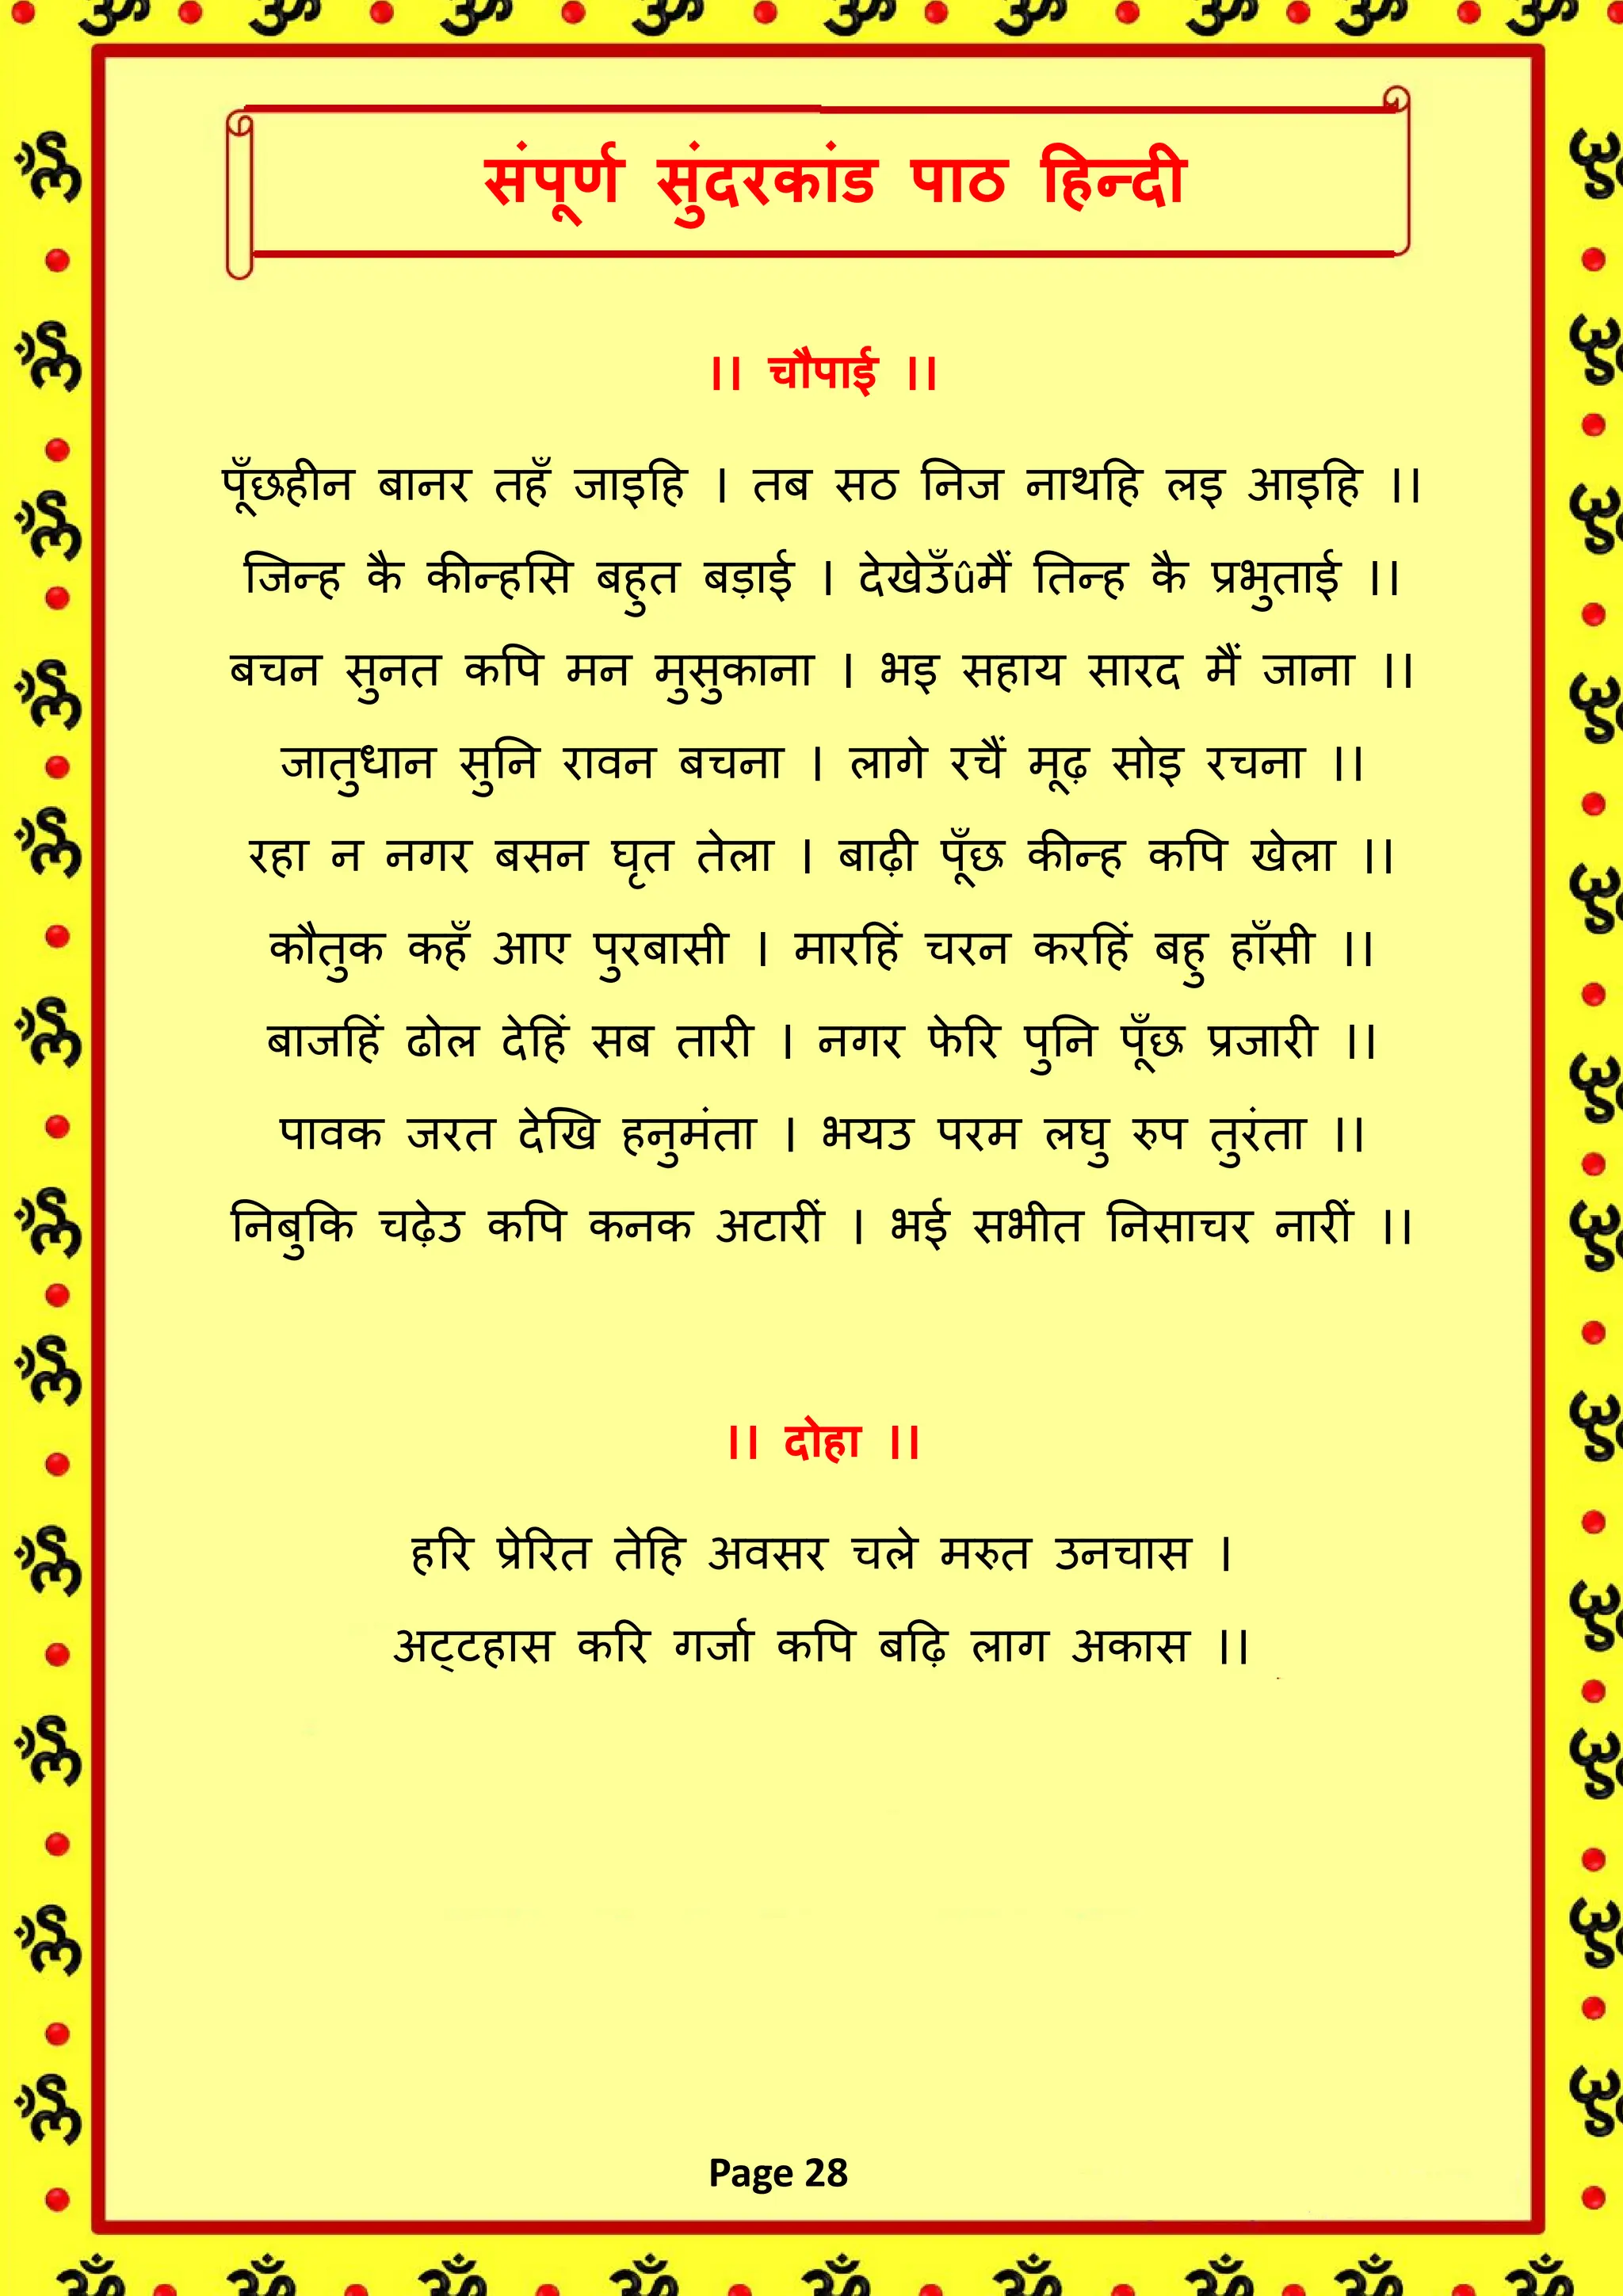 संपूर्ण सुंदरकांड पाठ हिन्दी
।। चौपाई ।।
पूँछहीन बानर तहँ जाइहि । तब सठ निज नाथहि लइ आइहि ।।
जिन्ह कै कीन्हसि बहुत बड़ाई । देखेउँûमैं तिन्ह कै प्रभुताई ।।
बचन सुनत कपि मन मुसुकाना । भइ सहाय सारद मैं जाना ।।
जातुधान सुनि रावन बचना । लागे रचैं मूढ़ सोइ रचना ।।
रहा न नगर बसन घृत तेला । बाढ़ी पूँछ कीन्ह कपि खेला ।।
कौतुक कहँ आए पुरबासी । मारहिं चरन करहिं बहु हाँसी ।।
बाजहिं ढोल देहिं सब तारी । नगर फेरि पुनि पूँछ प्रजारी ।।
पावक जरत देखि हनुमंता । भयउ परम लघु रुप तुरंता ।।
निबुकि चढ़ेउ कपि कनक अटारीं । भई सभीत निसाचर नारीं ।।
।। दोहा ।।
हरि प्रेरित तेहि अवसर चले मरुत उनचास ।
अट्टहास करि गर्जा कपि बढ़ि लाग अकास ।।
Page 28